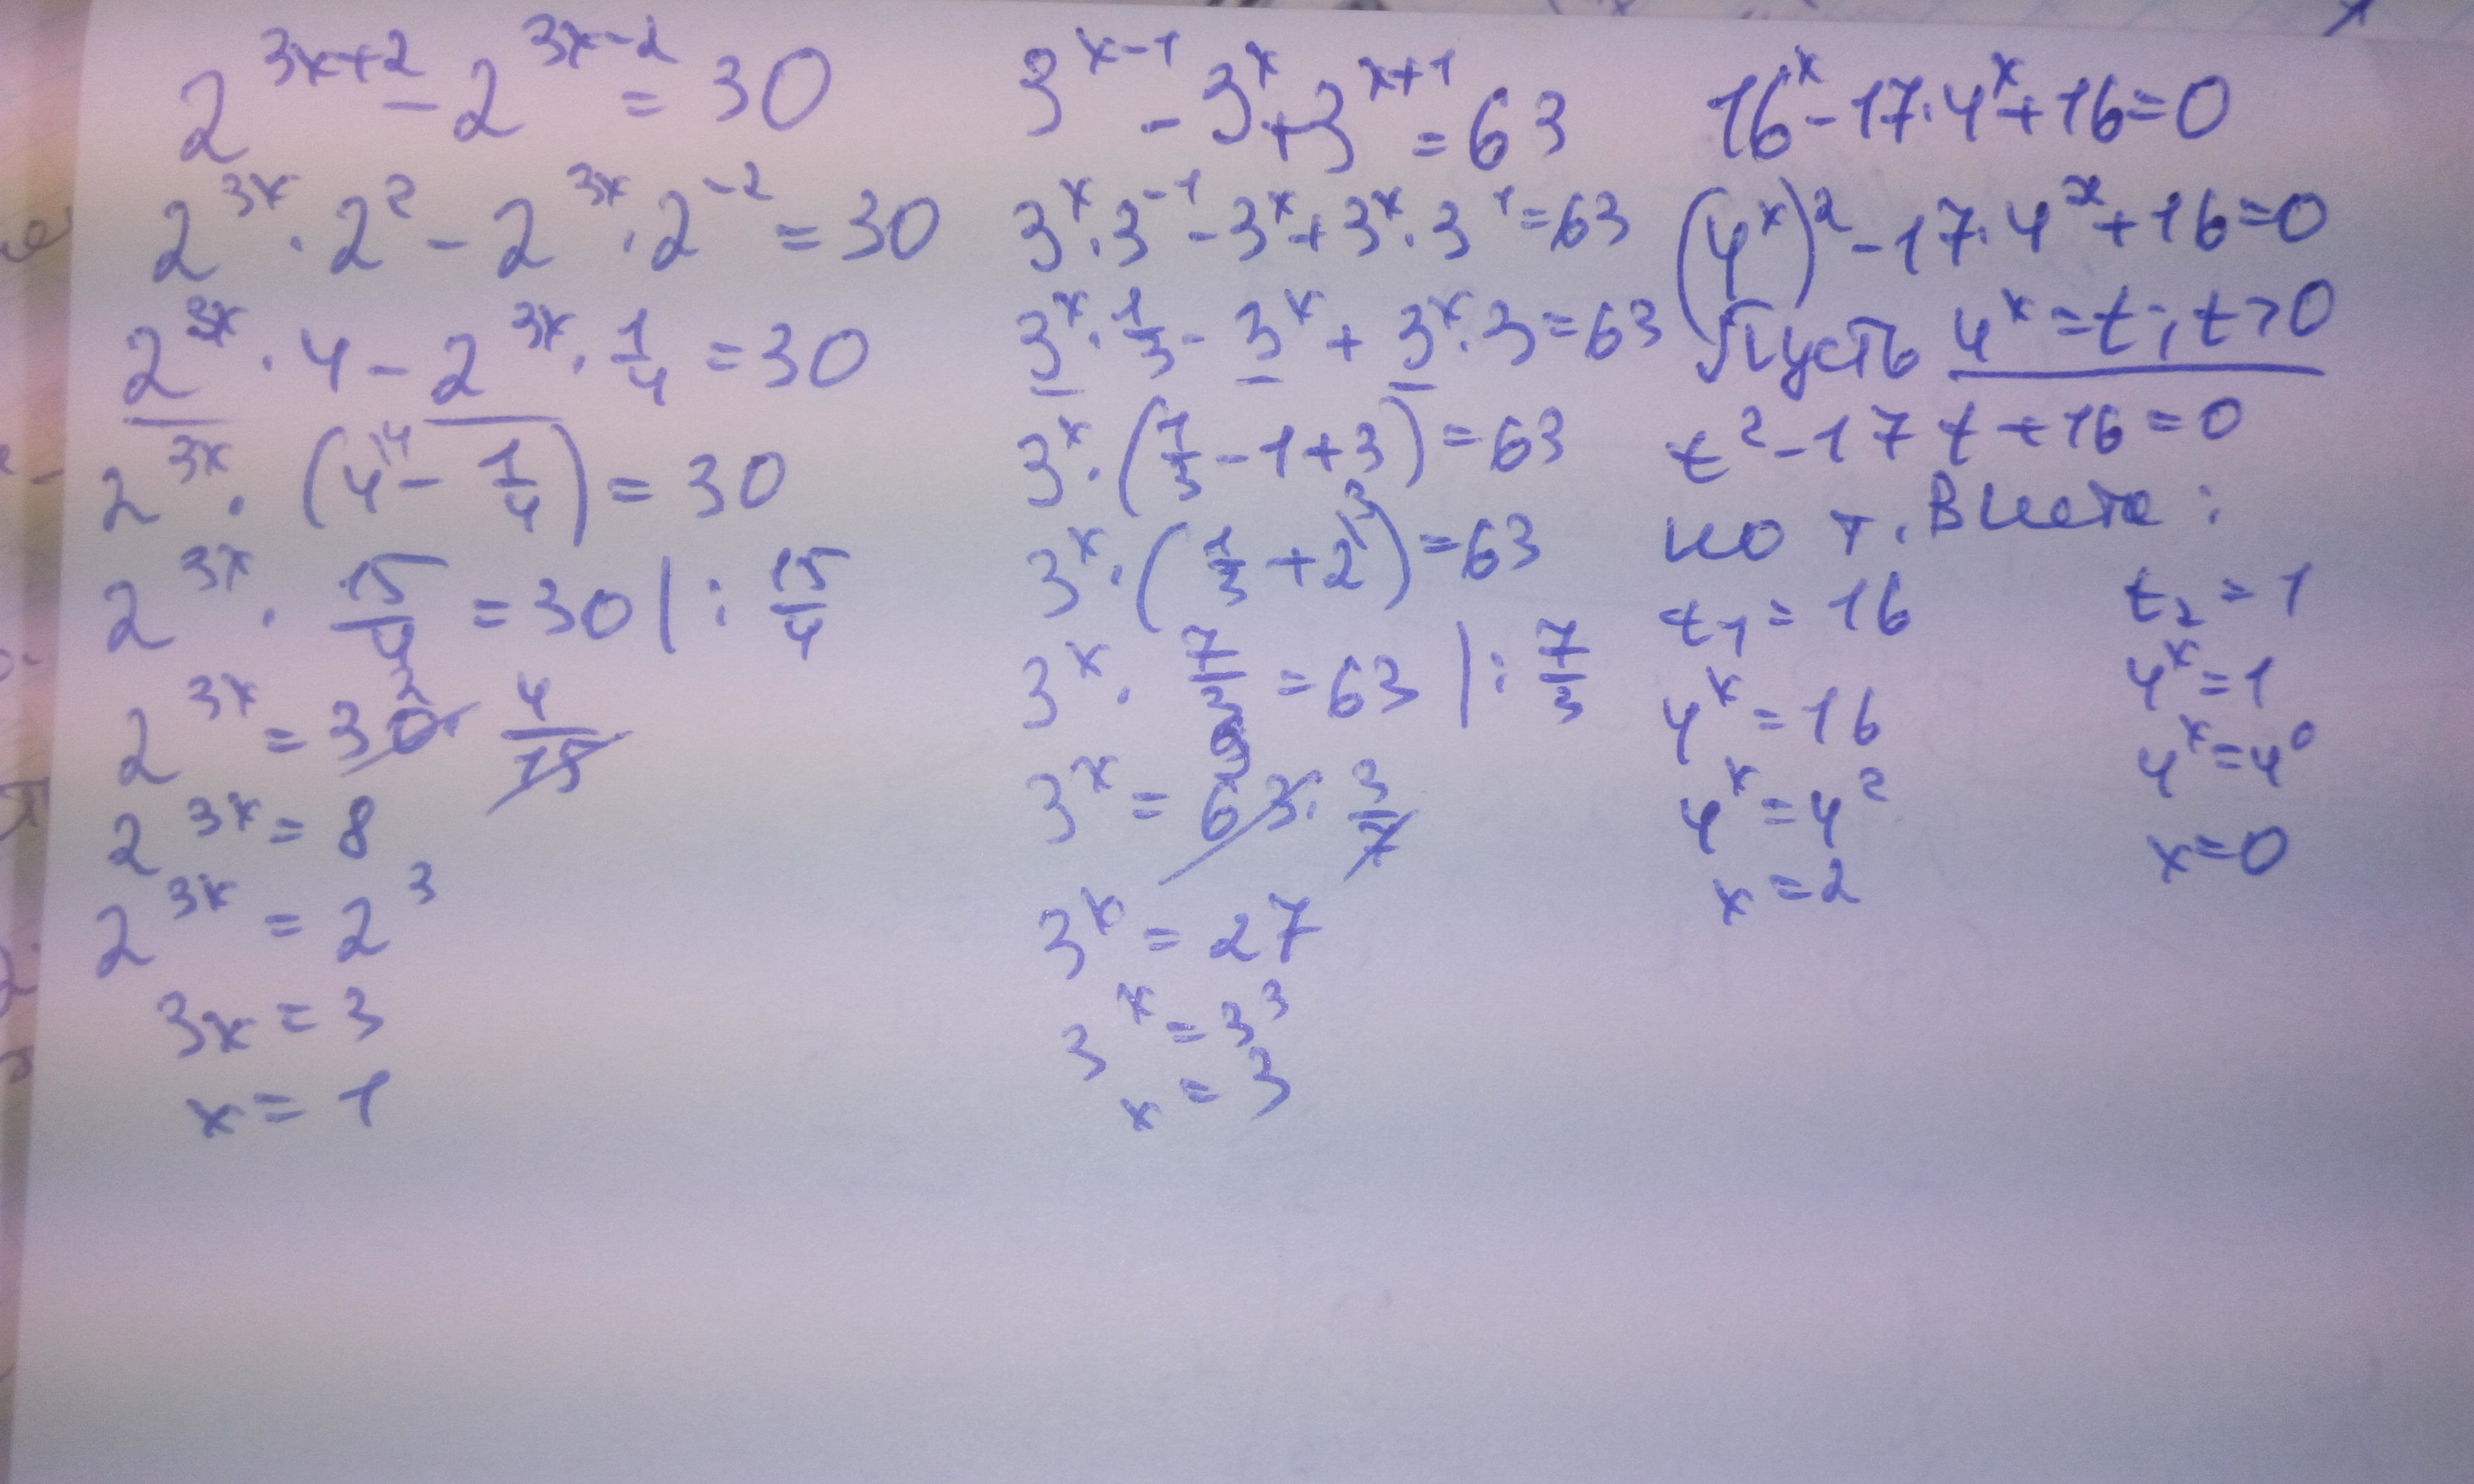 2^{3x+2} - 2^{3x-2} = 30
2^{3x} · 2^2 - 2^{3x} · 2^{-2} = 30
2^{3x} · 4 - 2^{3x} · 1/4 = 30
2^{3x} · (4^{\4} - 1/4) = 30
2^{3x} · 15/4 = 30 | : 15/4
2^{3x} = 30^2 · 4/15
2^{3x} = 8
2^{3x} = 2^3
3x = 3
x = 1
3^{x-1} - 3^x + 3^{x+1} = 63
3^x · 3^{-1} - 3^x + 3^x · 3^1 = 63
3^x · 1/3 - 3^x + 3^x · 3 = 63
3^x · (1/3 - 1 + 3) = 63
3^x · (1/3 + 2^{\3}) = 63
3^x · 7/3 = 63 | : 7/3
3^x = 63^9 · 3/7
3^x = 27
3^x = 3^3
x = 3
16^x - 17 · 4^x + 16 = 0
(4^x)^2 - 17 · 4^x + 16 = 0
Пусть 4^x = t; t > 0
t^2 - 17t + 16 = 0
по т. Виета:
t_1 = 16 t_2 = 1
4^x = 16 4^x = 1
4^x = 4^2 4^x = 4^0
x = 2 x = 0